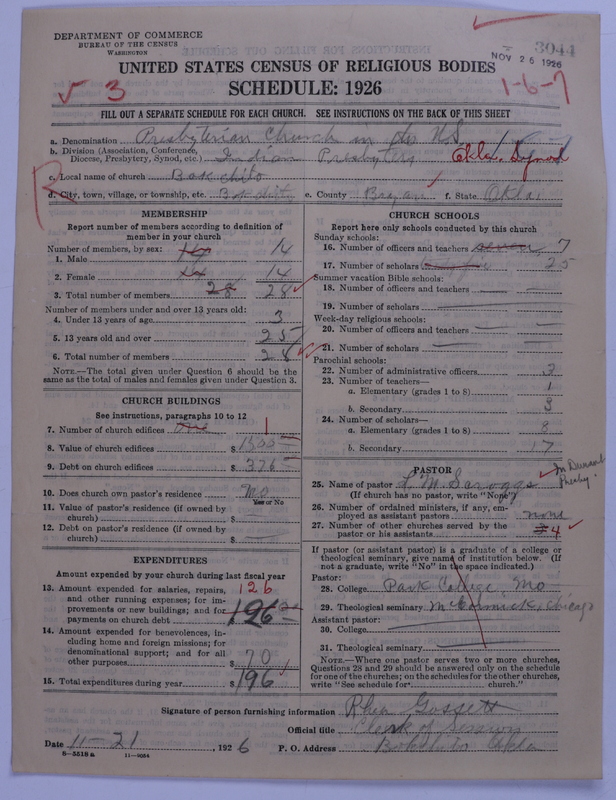 DEPARTMENT OF COMMERCE
BUREAU OF THE CENSUS
WASHINGTON
3044
NOV 26 1926
UNITED STATES CENSUS OF RELIGIOUS BODIES
SCHEDULE: 1926
3
1-6-7
FILL OUT A SEPARATE SCHEDULE FOR EACH CHURCH. SEE INSTRUCTIONS ON THE BACK OF THIS SHEET
a. Denomination Presbyterian Church in the U.S.
b. Division (Association, Conference, Diocese, Presbytery, Synod, etc.) Indian Presbytery Okla. Synod
c. Local name of church Bokchito
d. City, town, village, or township, etc. Bokchito e. County Bryan f. State Okla.
R
MEMBERSHIP
Report number of members according to definition of
member in your church
Number of members, by sex:
1. Male 14
2. Female 14
3. Total number of members 28 28
Number of members under and over 13 years old:
4. Under 13 years of age 3
5. 13 years old and over 25
6. Total number of members 28
NOTE.—The total given under Question 6 should be the
same as the total of males and females given under Question 3.
CHURCH BUILDINGS
See instructions, paragraphs 10 to 12
7. Number of church edifices one 1
8. Value of church edifices $ 1500
9. Debt on church edifices $ 376
10. Does church own pastor's residence No
Yes or No
11. Value of pastor's residence (if owned by
church) $
12. Debt on pastor's residence (if owned by
church) $
EXPENDITURES
Amount expended by your church during last fiscal year
13. Amount expended for salaries, repairs, 126
and other running expenses; for im-
provements or new buildings; and for
payments on church debt $ 196
14. Amount expended for benevolences, in-
cluding home and foreign missions; for
denominational support; and for all
other purposes $ 70
15. Total expenditures during year $ 196
CHURCH SCHOOLS
Report here only schools conducted by this church
Sunday schools:
16. Number of officers and teachers 7
17. Number of scholars 25
Summer vacation Bible schools:
18. Number of officers and teachers
19. Number of scholars
Week-day religious schools:
20. Number of officers and teachers
21. Number of scholars
Parochial schools:
22. Number of administrative officers 3
23. Number of teachers—
a. Elementary (grades 1 to 8) 1
b. Secondary 3
24. Number of scholars—
a. Elementary (grades 1 to 8) 8
b. Secondary 17
PASTOR
25. Name of pastor L. M. Scroggs
(If church has no pastor, write "None")
In Durant Presby.
26. Number of ordained ministers, if any, em-
ployed as assistant pastors none
27. Number of other churches served by the
pastor or his assistants 4
If pastor (or assistant pastor) is a graduate of a college or
theological seminary, give name of institution below. (If
not a graduate, write "No" in the space indicated.)
Pastor:
28. College Park College, Mo
29. Theological seminary McCormick, Chicago
Assistant pastor:
30. College
31. Theological seminary
NOTE.—Where one pastor serves two or more churches,
Questions 28 and 29 should be answered only on the schedule
for one of the churches; on the schedules for the other churches,
write "See schedule for church."
Signature of person furnishing information Gossett
Official title Clerk of Session
Date 11-21, 1926 P. O. Address Bokchito Okla
8-5518a 11-8054